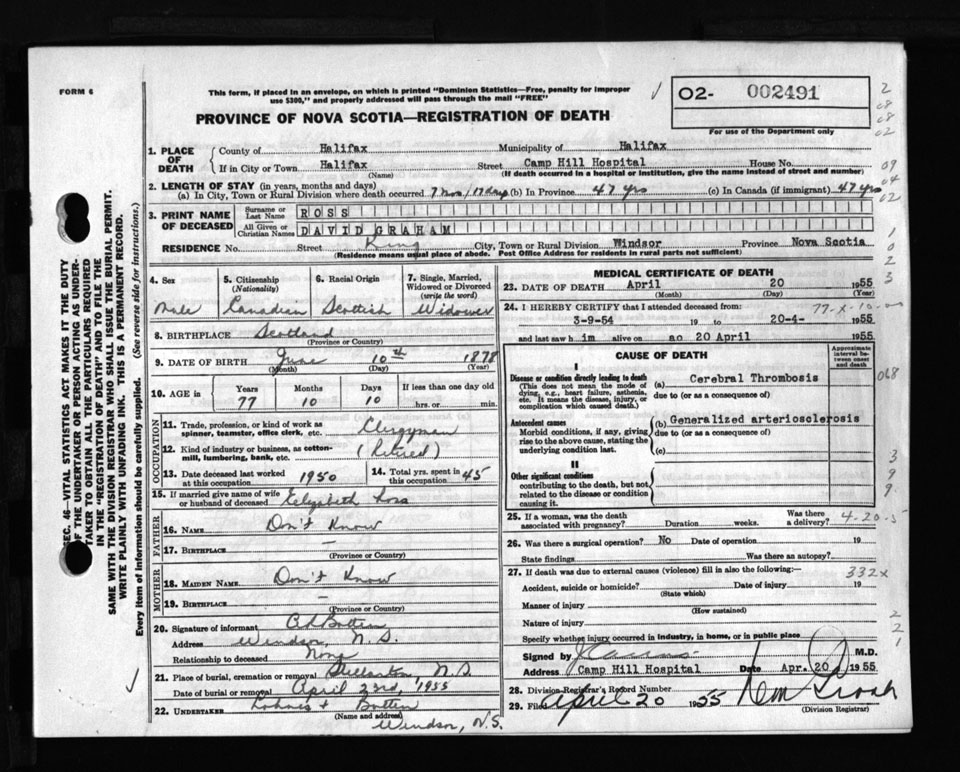 FORM 6
This form, if placed in an envelope, on which is printed "Dominion Statistics—Free, penalty for improper
use $300," and properly addressed will pass through the mail "FREE"
PROVINCE OF NOVA SCOTIA—REGISTRATION OF DEATH
02- 002491
For use of the Department only
1. PLACE OF DEATH
County of Halifax Municipality of Halifax
If in City or Town Halifax Street Camp Hill Hospital House No.
(Name) (If death occurred in a hospital or institution, give the name instead of street and number)
2. LENGTH OF STAY (in years, months and days)
(a) In City, Town or Rural Division where death occurred 7 mos/17 days (b) In Province 47 yrs (c) In Canada (if immigrant) 47 yrs
3. PRINT NAME OF DECEASED
Surname or Last Name ROSS
All Given or Christian Names DAVID GRAHAM
RESIDENCE No. Street King City, Town or Rural Division Windsor Province Nova Scotia
(Residence means usual place of abode. Post Office Address for residents in rural parts not sufficient)
4. Sex
Male
5. Citizenship
(Nationality)
Canadian
6. Racial Origin
Scottish
7. Single, Married,
Widowed or Divorced
(write the word)
Widower
8. BIRTHPLACE Scotland
(Province or Country)
9. DATE OF BIRTH June 10th 1878
(Month) (Day) (Year)
10. AGE in
Years Months Days If less than one day old
77 10 10 hrs. or min.
OCCUPATION
11. Trade, profession, or kind of work as
spinner, teamster, office clerk, etc. Clergyman
12. Kind of industry or business, as cotton-
mill, lumbering, bank, etc. (Retired)
13. Date deceased last worked
at this occupation 1950
14. Total yrs. spent in
this occupation 45
15. If married give name of wife
or husband of deceased Elizabeth Ross
FATHER
16. NAME Don't Know
17. BIRTHPLACE —
(Province or Country)
MOTHER
18. MAIDEN NAME Don't Know
19. BIRTHPLACE —
(Province or Country)
20. Signature of informant
Address Windsor, N.S.
Relationship to deceased None
21. Place of burial, cremation or removal Stellarton, N.S.
Date of burial or removal April 23rd, 1955
22. UNDERTAKER
(Name and address)
Windsor, N.S.
MEDICAL CERTIFICATE OF DEATH
23. DATE OF DEATH April 20 1955
(Month) (Day) (Year)
24. I HEREBY CERTIFY that I attended deceased from:
3-9-54 19 to 20-4- 1955
and last saw h im alive on ao 20 April 1955
CAUSE OF DEATH
Approximate
interval be-
tween onset
and death
I
Disease or condition directly leading to death
(This does not mean the mode of
dying, e.g., heart failure, asthenia,
etc. It means the disease, injury, or
complication which caused death.)
(a) Cerebral Thrombosis
due to (or as a consequence of)
Antecedent causes
Morbid conditions, if any, giving
rise to the above cause, stating the
underlying condition last.
(b) Generalized arteriosclerosis
due to (or as a consequence of)
(c)
II
Other significant conditions
contributing to the death, but not
related to the disease or condition
causing it.
25. If a woman, was the death
associated with pregnancy? Duration weeks. Was there
a delivery? 4-20-5
26. Was there a surgical operation? No Date of operation 19
State findings Was there an autopsy?
27. If death was due to external causes (violence) fill in also the following:— 332x
Accident, suicide or homicide? Date of injury 19
(State which)
Manner of injury
(How sustained)
Nature of injury
Specify whether injury occurred in industry, in home, or in public place
Signed by M.D.
Address Camp Hill Hospital Date Apr. 20 1955
28. Division Registrar's Record Number
29. Filed April 20 1955
(Division Registrar)
SEC. 46—VITAL STATISTICS ACT MAKES IT THE DUTY
OF THE UNDERTAKER OR PERSON ACTING AS UNDER-
TAKER TO OBTAIN ALL THE PARTICULARS REQUIRED
IN THE "REGISTRATION OF DEATH" AND TO FILE THE
SAME WITH THE DIVISION REGISTRAR WHO SHALL ISSUE THE BURIAL PERMIT.
WRITE PLAINLY WITH UNFADING INK. THIS IS A PERMANENT RECORD.
Every item of information should be carefully supplied. (See reverse side for instructions.)